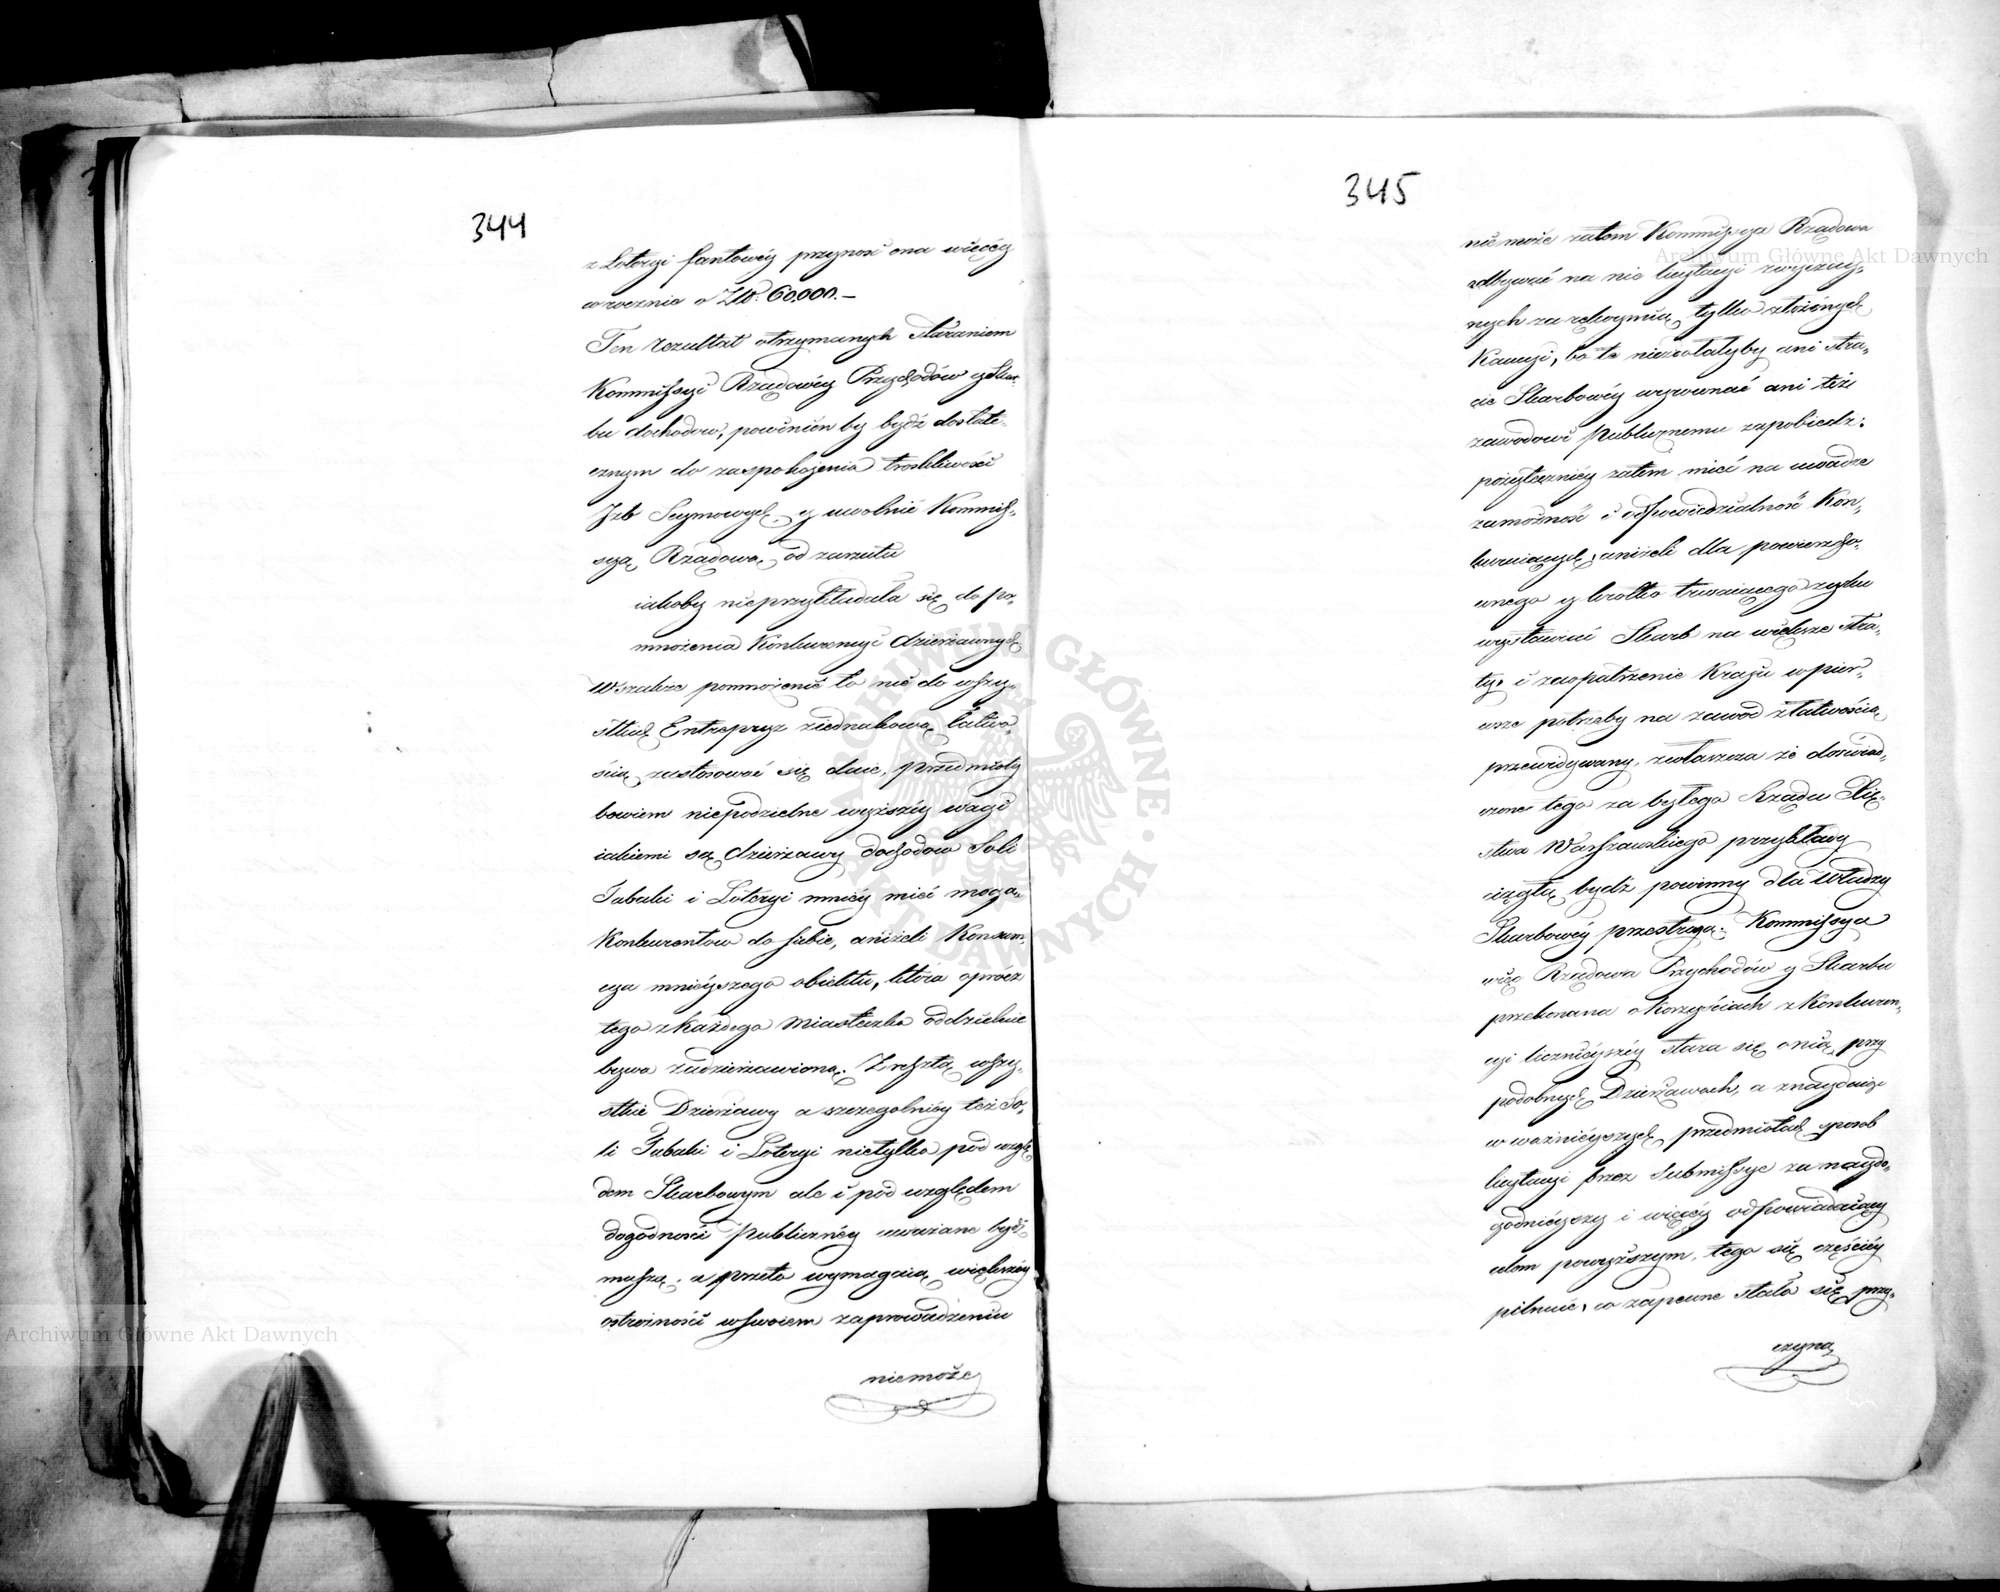 344
z Loteryi fantowéy przynosi ona więcéy
w rocznie o Złt. 60.000.—
Ten rezultat otrzymanych staraniem
Kommissyi Rządowéy Przychodów y Skar-
bu dochodow, powinien by bydź dostate-
cznym do zaspokoienia troskliwości
Izb Seymowych, y uwolnić Kommis-
syą Rządową od zarzutu
iakoby nieprzykładała się do po-
mnożenia Konkurencyi dzierżawnych
Wszakże pomnożenie to nie do wszy-
stkich Entrepryz ziednakową łatwo-
ścią zastosować się daie, przedmioty
bowiem niepodzielne wyższéy wagi
iakiemi są dzierżawy dochodow Soli
Tabaki i Loteryi mniéy mieć mogą
Konkurentow do siebie, aniżeli Konsum-
cya mnieyszego obiektu, która oprócz
tego z każdego Miasteczka oddzielnie
bywa zadzierżawioną. Zresztą wszy-
stkie Dzierżawy a szczegolniéy też So-
li Tabaki i Loteryi nietylko pod wzglę-
dem Skarbowym ale i pod względem
dogodności publicznéy uważane bydź
muszą, a przeto wymagaią większéy
ostrożności w swoiem zaprowadzeniu
niemoże
345
nie może zatem Kommissya Rządowa
odbywać na nie licytacyi zwyczay-
nych za rękoymią tylko złożonych
Kaucyi, bo te niezdołałyby ani stra-
cie Skarbowéy wyrównać ani też
zawodowi publicznemu zapobiedz:
pożyteczniéy zatem mieć na uwadze
zamożność i odpowiedzialność Kon-
kuruiących, aniżeli dla powierzcho-
wnego y krotko trwaiącego zysku
wystawiać Skarb na większe stra-
ty i zaopatrzenie Kraiu w pier-
wsze potrzeby na zawod z łatwością
przewidywany, zwłaszcza że doświad-
czone tego za byłego Rządu Xię-
stwa Warszawskiego przykłady
ciągłą bydź powinny dla Władzy
Skarbowéy przestrogą. Kommissya
więc Rządowa Przychodów y Skarbu
przekonana o korzyściach z Konkuren-
cyi licznieyszéy stara się o nią przy
podobnych Dzierżawach, a znayduiąc
w ważnieyszych przedmiotach sposob
licytacyi przez Submissye za naydo-
godnieyszy i więcéy odpowiadaiący
celom powyższym, tego się częściéy
pilnuie, co zapewne stało się przy-
czyną
Archiwum Główne Akt Dawnych
Archiwum Główne Akt Dawnych
ARCHIWUM GŁÓWNE AKT DAWNYCH